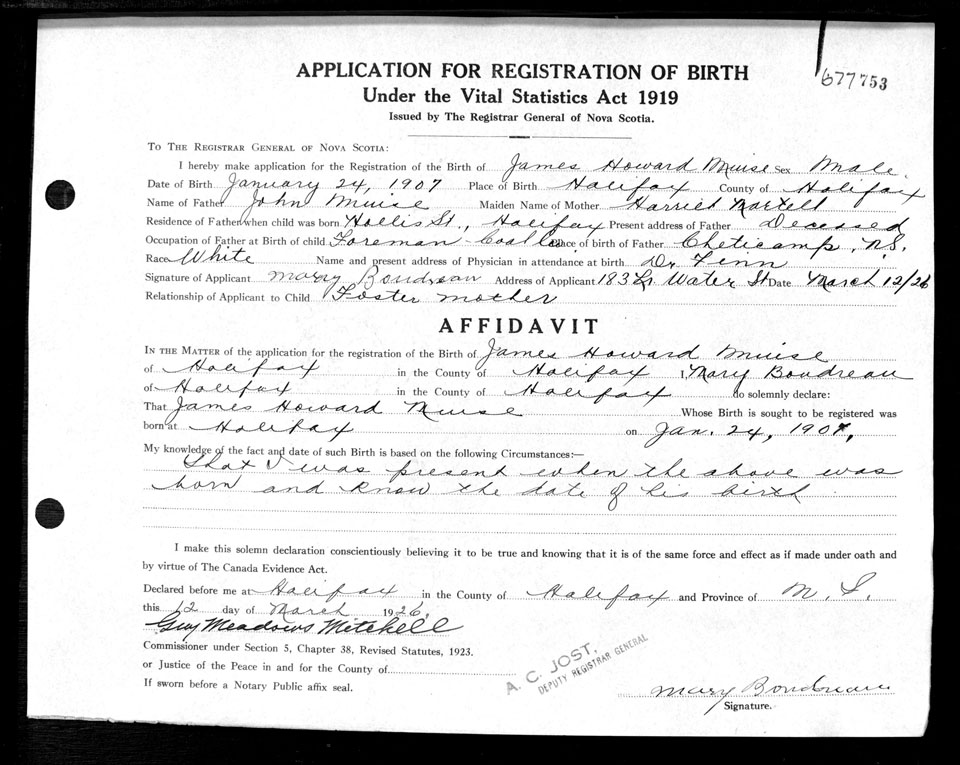 677753
APPLICATION FOR REGISTRATION OF BIRTH
Under the Vital Statistics Act 1919
Issued by The Registrar General of Nova Scotia.
TO THE REGISTRAR GENERAL OF NOVA SCOTIA:
I hereby make application for the Registration of the Birth of James Howard Muise Sex Male.
Date of Birth January 24, 1907 Place of Birth Halifax County of Halifax
Name of Father John Muise Maiden Name of Mother Harriet Martell
Residence of Father when child was born Hollis St., Halifax Present address of Father Deceased
Occupation of Father at Birth of child Foreman - Coal Co. Place of birth of Father Cheticamp, N.S.
Race White Name and present address of Physician in attendance at birth Dr Finn
Signature of Applicant Mary Boudreau Address of Applicant 183 Water St Date March 12/26
Relationship of Applicant to Child Foster mother
AFFIDAVIT
IN THE MATTER of the application for the registration of the Birth of James Howard Muise
of Halifax in the County of Halifax I, Mary Boudreau
of Halifax in the County of Halifax do solemnly declare:
That James Howard Muise Whose Birth is sought to be registered was
born at Halifax on Jan. 24, 1907,
My knowledge of the fact and date of such Birth is based on the following Circumstances:—
That I was present when the above was
born and know the date of his birth
I make this solemn declaration conscientiously believing it to be true and knowing that it is of the same force and effect as if made under oath and
by virtue of The Canada Evidence Act.
Declared before me at Halifax in the County of Halifax and Province of N. S.
this 12 day of March 1926.
Guy Meadows Mitchell
Commissioner under Section 5, Chapter 38, Revised Statutes, 1923.
or Justice of the Peace in and for the County of
If sworn before a Notary Public affix seal.
A. C. JOST,
DEPUTY REGISTRAR GENERAL
Mary Boudreau
Signature.